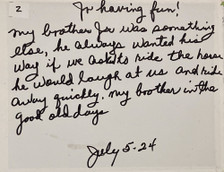 2
Jr having fun!
my brother Jr was something
else, he always wanted his
way if we asked to ride the horse
he would laugh at us and ride
away quickly. my brother in the
good old days
July 5-24